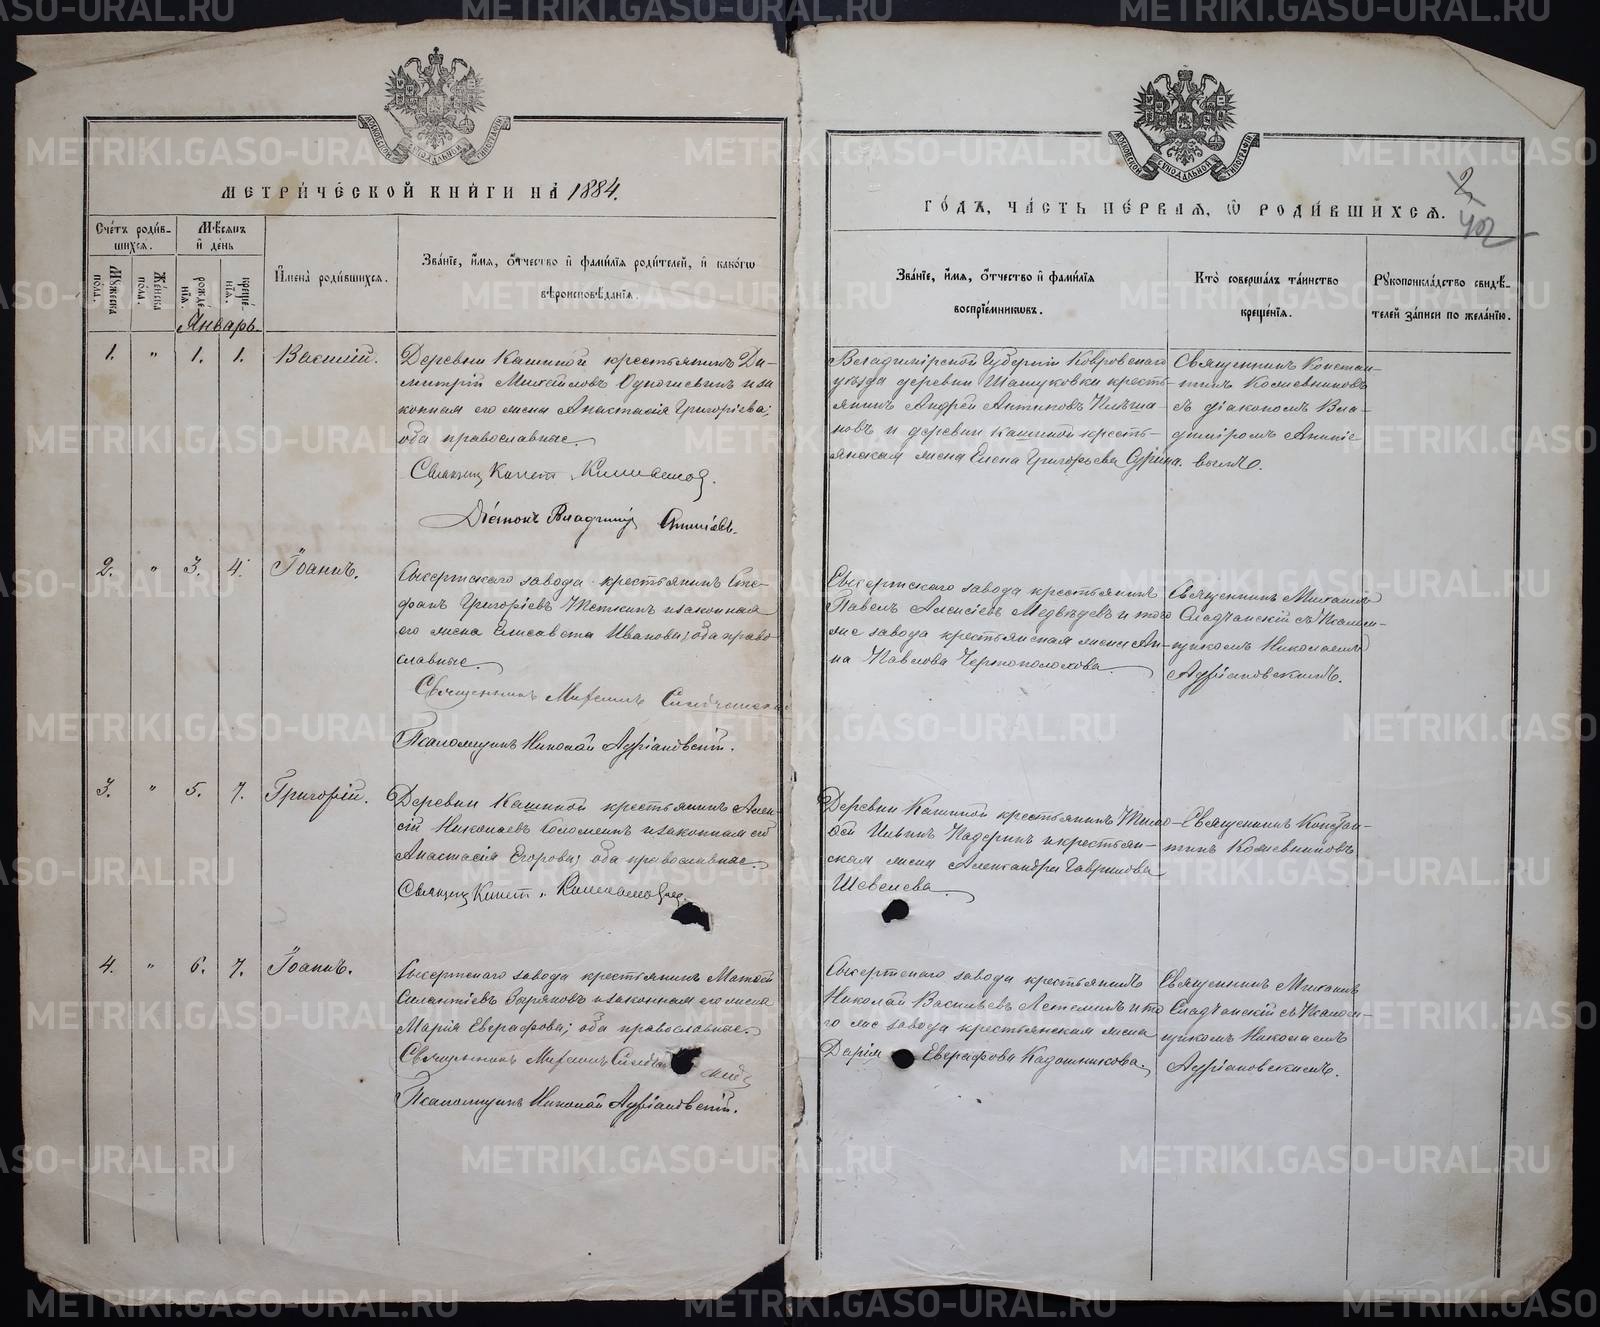 МЕТРИ́ЧЕСКОЙ КНИ́ГИ НА̀ 1884.
Сче́тъ роди́в-
шихсѧ.
Мѣ́сѧцъ
и҆ де́нь
И҆мена̀ роди́вшихсѧ.
Зва́нїе, и҆́мѧ, ѻ҆́тчество и҆ фами́лїѧ роди́телей, и҆ како́гѡ
вѣроисповѣ́данїѧ.
Му́жеска
по́ла.
Же́нска
по́ла.
рожде́
нїѧ.
креще́-
нїѧ.
Январь.
1. " 1. 1. Василій.
Деревни Кашиной крестьянинъ Ди-
митрій Михайловъ и за
конная его жена Анастасія Григорьева;
оба православные.
Священ Конст
Діаконъ Владимір
2. " 3. 4. Іоаннъ.
Сысертскаго завода крестьянинъ Сте-
фанъ Григоріевъ и законная
его жена Елисавета Иванова; оба право-
славные.
Священникъ Михаилъ
Псаломщикъ Николай Адріановскій.
3. " 5. 7. Григорій.
Деревни Кашиной крестьянинъ Алек-
сій Николаевъ и законная его
Анастасія Егорова; оба православные.
Священ Конст
4. " 6. 7. Іоаннъ.
Сысертскаго завода крестьянинъ Матѳей
Силантіевъ Зыряновъ и законная его жена
Марія Евграфова; оба православные.
Священникъ Михаилъ
Псаломщикъ Николай Адріановскій.
ГО́ДЪ, ЧА́СТЬ ПЕ́РВАѦ, Ѡ҆ РОДИ́ВШИХСѦ.
2
402
Зва́нїе, и҆́мѧ, ѻ҆́тчество и҆ фами́лїѧ
воспрїе́мникѡвъ.
Кто̀ соверша́лъ та́инство
креще́нїѧ.
Рꙋкоприкла́дство свидѣ́-
телей за́писи по жела́нїю.
Владимірской Губерніи Ковровскаго
уѣзда деревни крестья-
янинъ Андрей Антиповъ
новъ и деревни Кашиной кресть-
янская жена Елена Григорьева
Священникъ Констан-
тинъ Кожевниковъ
съ діакономъ Вла-
диміромъ
Сысертскаго завода крестьянинъ
Павелъ Алексіевъ Медвѣдевъ и того
же завода крестьянская жена Ан-
на Павлова Чертополохова.
Священникъ Михаилъ
Сладчанскій съ Псалом-
щикомъ Николаемъ
Адріановскимъ.
Деревни Кашиной крестьянинъ Тимо-
ѳей Ильинъ и крестьян-
ская жена Александра Гаврилова
Шевелева.
Священникъ Констан-
тинъ Кожевниковъ
Сысертскаго завода крестьянинъ
Николай Васильевъ и то
го же завода крестьянская жена
Дарія Евграфова Кадошникова.
Священникъ Михаилъ
Сладчанскій съ Псалом-
щикомъ Николаемъ
Адріановскимъ.
METRIKI.GASO-URAL.RU